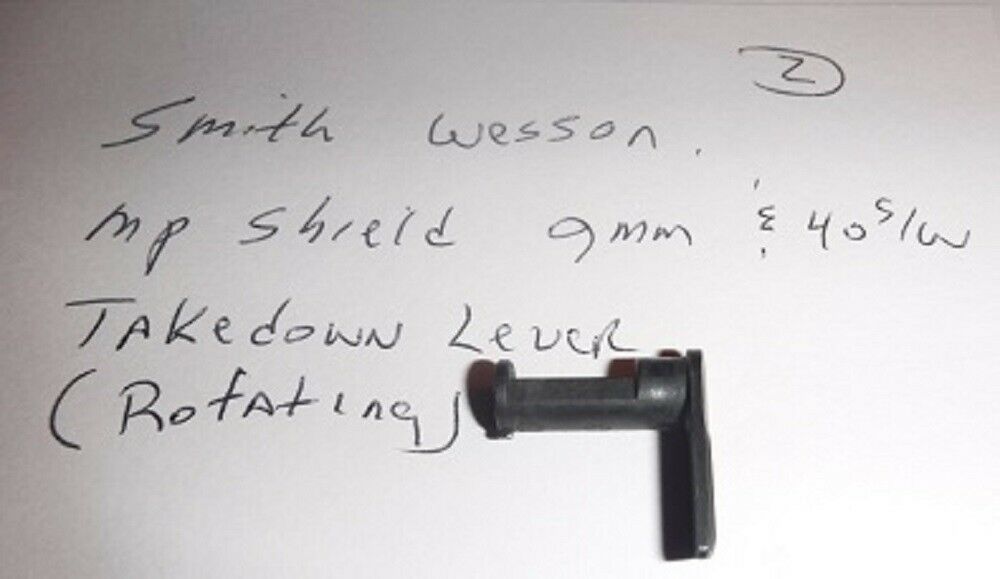 2
Smith Wesson.
mp Shield 9mm & 40 S/W
TAKedown Lever
(Rotating)